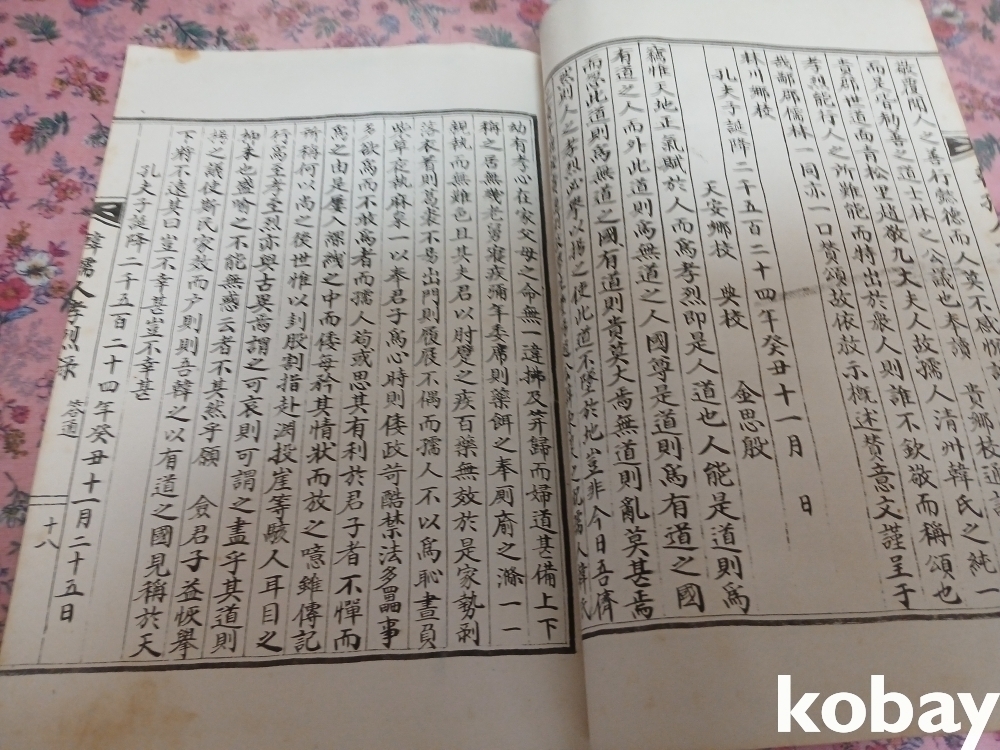 敬覆聞人之善行懿德而人莫不感
而是官勸善之道士林之公議也本讀 貴鄉校通
貴郡世道面青松里趙敬九大夫人故孺人清州韓氏之純一
孝烈能行人之所難能而特出於衆人則誰不欽敬而稱頌也
哉鄙郡儒林一同亦一口贊頌故依放示概述贊意文謹呈于
林川鄉校
孔夫子誕降二千五百二十四年癸丑十一月 日
天安鄉校 典校 金思殷
竊惟天地正氣賦於人而爲孝烈即是人道也人能是道則爲
有道之人而外此道則爲無道之人國尊是道則爲有道之國
而忽此道則爲無道之國有道則貴莫大焉無道則亂莫甚焉
然則人之孝烈必擧以揚之使此道不墜於地豈非今日吾儕
幼有孝心在家父母之命無一違拂及笄歸而婦道甚備上下
稱之居無幾老舅寢疾彌年委席則藥餌之奉厠窬之滌一一
親執而無難色且其夫君以肘臂之疾百藥無效於是家勢剝
落衣着則葛裘不易出門則履屐不偶而孺人不以爲恥晝員
柴草夜執麻枲一以奉君子爲心時則倭政苛酷禁法多畾事
多欲爲而不敢爲者而孺人苟或思其有利於君子者不憚而
爲之由是屢入深緘之中而倭每矜其情狀而放之噫雖傳記
所稱何以尚之後世惟以刲股割指赴淵投崖等駭人耳目之
行爲至孝至烈亦與古異焉謂之可哀則可謂之盡乎其道則
抑末也蠻喩之不能無惑云者不其然乎願 僉君子益恢擧
揚之議使斯民家效而戶則則吾韓之以有道之國見稱於天
下將不遠其曰豈不幸甚豈不幸甚
孔夫子誕降二千五百二十四年癸丑十一月二十五日
韓孺人孝烈錄 答通 十八
kobay